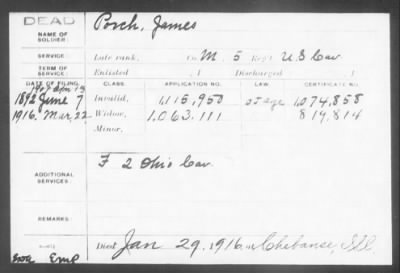 DEAD
NAME OF SOLDIER:
Porch, James
SERVICE:
Late rank, Co. M. 5 Reg't U.S Cav.
TERM OF SERVICE:
Enlisted , 1 Discharged , 1
DATE OF FILING.
CLASS.
APPLICATION NO.
LAW.
CERTIFICATE NO.
1892 June 7
Invalid,
1,115,950
1,074,858
1916. Mar. 22
Widow,
1,063,111
814,814
Minor,
ADDITIONAL SERVICES:
F 2 Ohio Cav.
REMARKS:
Died Jan 29, 1916, Chebanse, Ill.